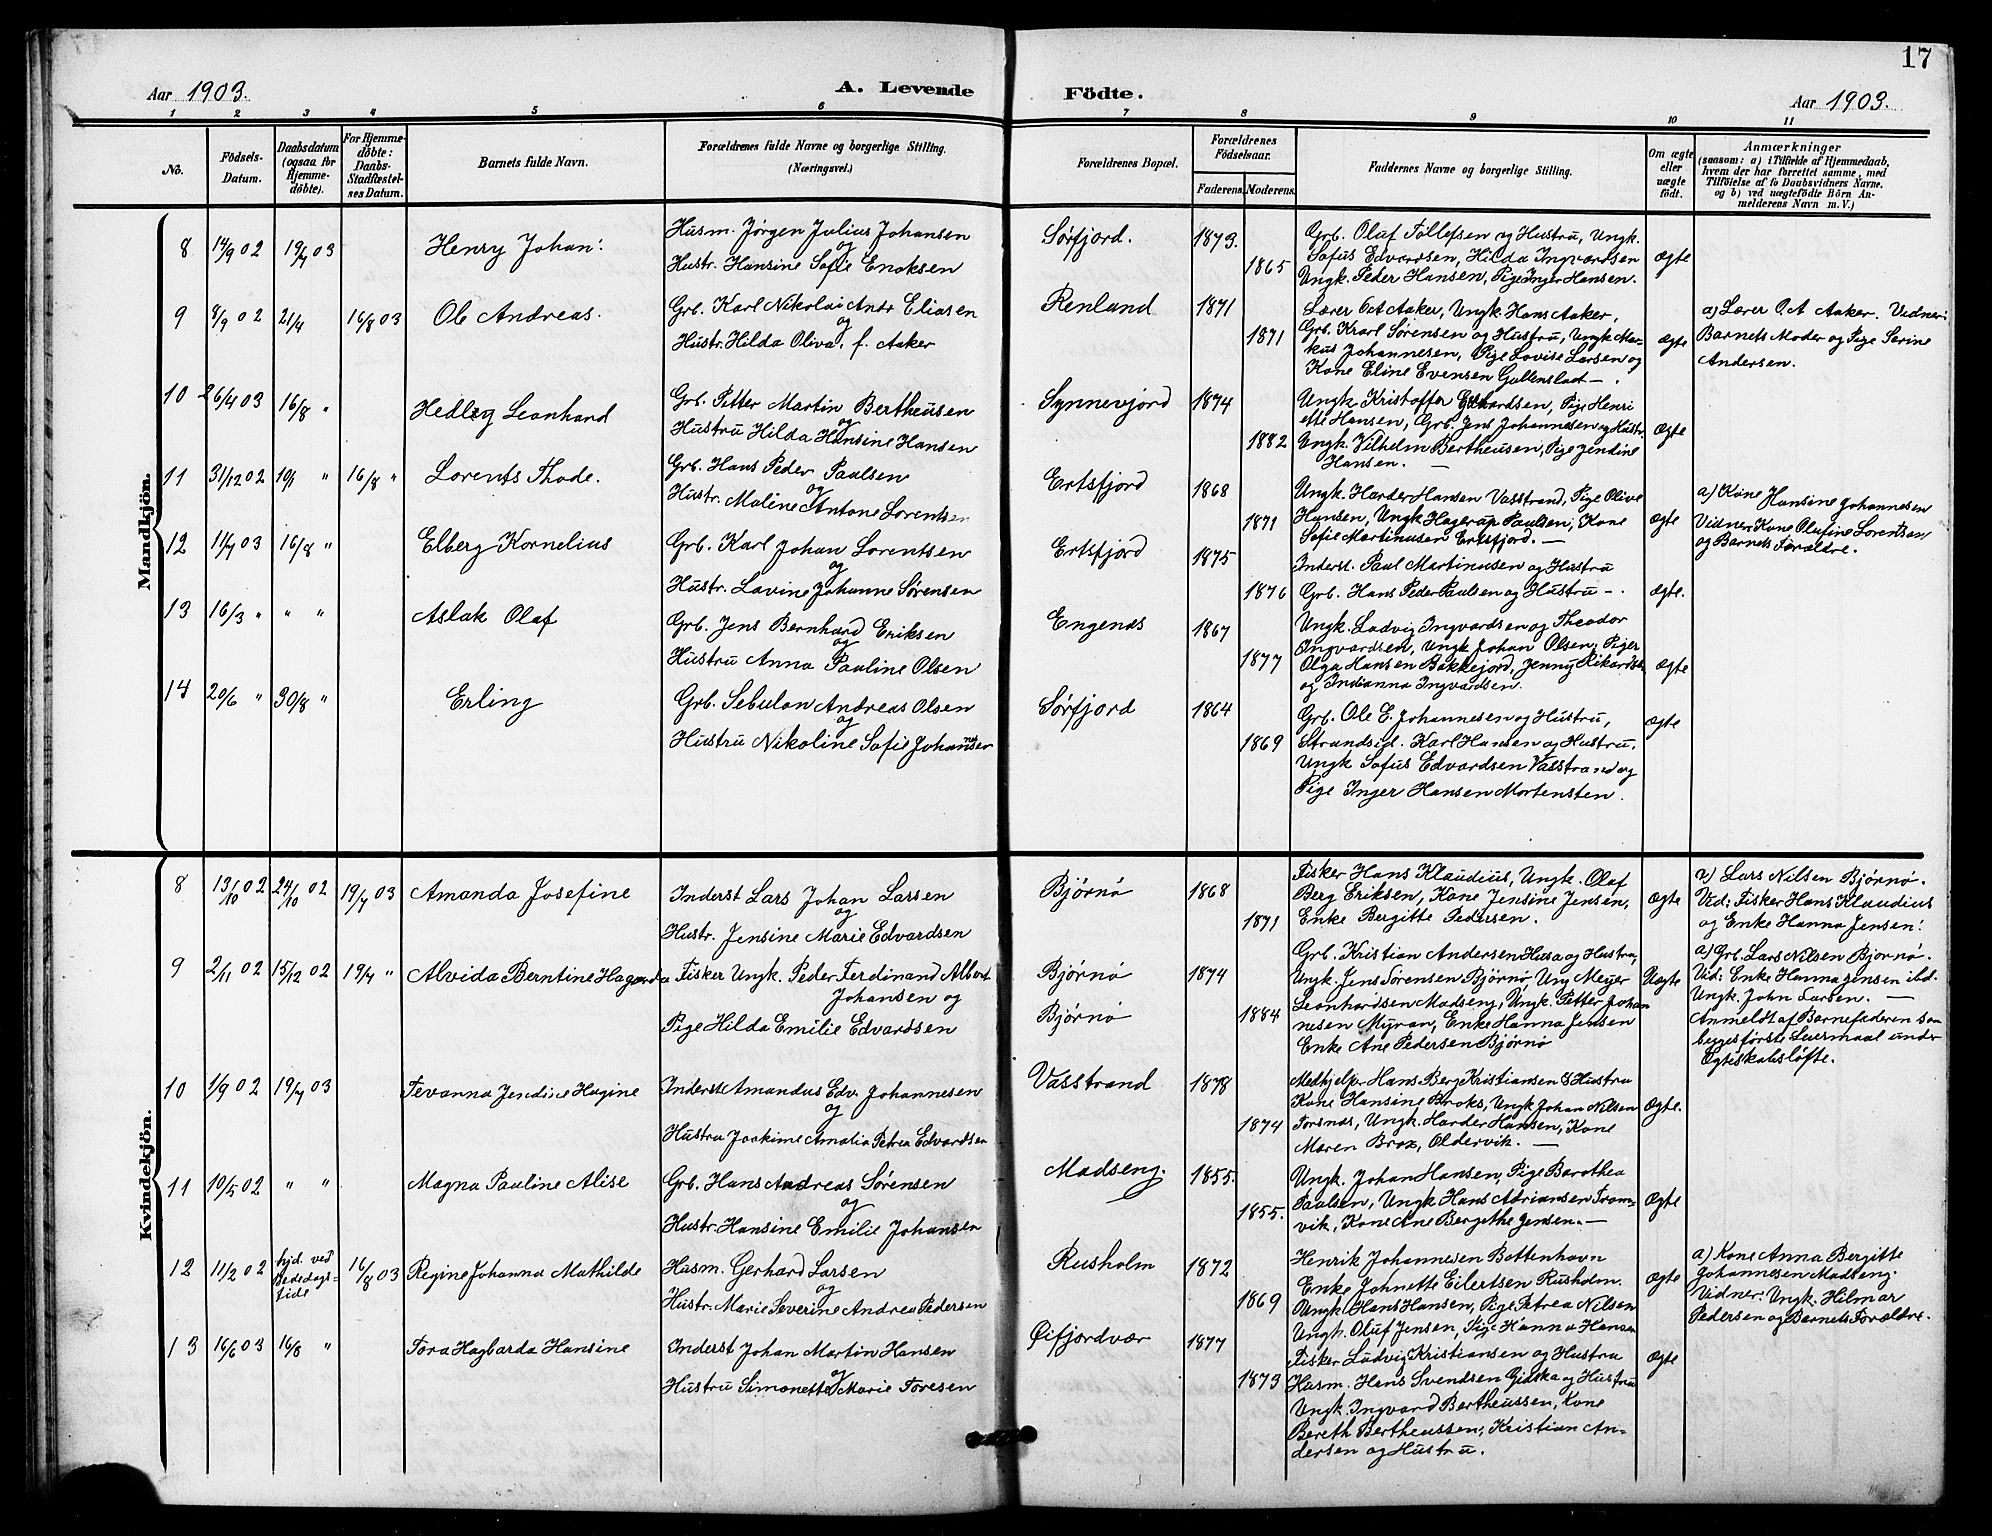 17
Aar 1903.
A. Levende
Födte.
Aar 1903.
1 2 3 4 5 6 7 8 9 10 11
No.
Födsels-Datum.
Daabsdatum (ogsaa for Hjemmedöbte).
For Hjemmedöbte: Daabs-Stadfæstelses Datum.
Barnets fulde Navn.
Forældrenes fulde Navne og borgerlige Stilling.
(Næringsvei.)
Forældrenes Bopæl.
Forældrenes Födselsaar.
Faderens. Moderens.
Faddernes Navne og borgerlige Stilling.
Om ægte eller uægte födt.
Anmærkninger
(saasom: a) i Tilfælde af Hjemmedaab, hvem der har forrettet samme, med Tilföielse af to Daabsvidners Navne, og b) ved uægtefödte Börn Anmelderens Navn m. V.)
Mandkjön.
8 14/9 02 19/4 03 Henry Johan
Husm. Jørgen Julius Johansen
og
Hustr. Hansine Sofie Enoksen
Sørfjord. 1873. 1865
Grb. Oluf Tollefsen og Hustru, Ungk.
Sofus Edvardsen, Hilda Ingvardsen
Ungk. Peder Hansen, Pige Inger Hansen.
Ægte
9 8/9 02 21/4 16/8 03 Ole Andreas.
Grb. Karl Nikolai Andr Eliasen
og
Hustr. Hilda Oliva, f. Aaker
Renland 1871 1871
Lærer Oct Aaker, Ungk. Hans Aaker,
Grb. Krarl Sørensen og Hustru, Ungk Mar-
kus Johannesen, Pige Lovise Larsen og
Kone Eline Evensen
Ægte
a) Lærer O. A Aaker. Vidner:
Barnets Moder og Pige Serine
Andersen.
10 26/4 03 16/8 " Hedley Leonhard
Grb. Petter Martin Bertheusen
og
Hustru Hilda Hansine Hansen
Synnevjord 1874 1882
Ungk Kristoffer Edvardsen, Pige Henri
ette Hansen, Grb. Jens Johannesen og Hustr.
Ungk. Vilhelm Bertheusen, Pige Jendine
Hansen. —
Ægte
11 31/12 02 10/1 " 16/8 " Lorents Thode.
Grb. Hans Peder Paulsen
og
Hustr. Maline Antone Lorentsen
Ertsfjord 1868 1871
Ungk. Harder Hansen Vasstrand, Pige Olive
Hansen, Ungk Hagerup Paulsen, Kone
Sofie Martinusen Ertsfjord. —
Ægte
a) Kone Hansine Johannesen
Vidner: Kone Olufine Lorentsen
og Barnets Forældre.
12 11/4 03 16/8 " Elberg Kornelius
Grb. Karl Johan Lorentsen
og
Hustr. Lovine Johanne Sørensen
Ertsfjord 1875 1876
Inderst. Paul Martinusen og Hustru
Grb. Hans Peder Paulsen og Hustru —.
Ægte.
13 16/3 " " " Aslak Olaf
Grb. Jens Bernhard Eriksen
og
Hustru Anna Pauline Olsen
Engenæs 1867 1877
Ungk. Ludvig Ingvardsen og Theodor
Ingvardsen, Ungk Johan Olsen, Piger
Olga Hansen Bakkejord, Jenny Rikardsen
og Indianna Ingvardsen.
Ægte
14 20/6 " 30/8 " Erling
Grb. Sebulon Andreas Olsen
og
Hustru Nikoline Sofie Johannesen
Sørfjord 1864 1869
Grb. Ole E. Johannesen og Hustru,
Strandsid. Karl Hansen og Hustru.
Ungk Sofus Edvardsen Vasstrand og
Pige Inger Hansen Mortensten.
Ægte
Kvindekjön.
8 13/10 02 24/10 02 19/4 03 Amanda Josefine
Inderst Lars Johan Larsen
og
Hustr. Jensine Marie Edvardsen
Bjørnø 1868 1871
Fisker Hans Klaudius, Ungk. Olaf
Berg Eriksen, Kone Jensine Jensen,
Enke Bergitte Pedersen.
Ægte
a) Lars Nilsen Bjørnø.
Vid: Fisker Hans Klaudius
og Enke Hanna Jensen.
9 2/11 02 15/12 02 19/4 " Alvida Berntine
Fisker Ungk. Peder Ferdinand Albert
Johansen og
Pige Hilda Emilie Edvardsen
Bjørnø
Bjørnø 1874 1884
Grb. Kristian Andersen Husa og Hustru,
Ungk. Jens Sørensen Bjørnø, Ung Meyer
Leonhardsen Madseng, Ungk. Petter Johan
nesen Myran, Enke Hanna Jensen
Enke Ane Pedersen Bjørnø
Uægte
a) Grb. Lars Nilsen Bjørnø.
Vid: Enke Hanna Jensen ibd.
Ungk. John Larsen. —
Anmeldt af Barnefaderen som
begges første Leiermaal under
Ægteskabsløfte.
10 1/9 02 19/4 03 Tevanna Jendine Hagine
Inderst Amandus Edv. Johannesen
og
Hustru Joakime Amalia Petra Edvardsen
Vasstrand 1878 1874
Medhjelper Hans Berg Kristiansen & Hustru
Kone Hansine Broks, Ungk Johan Nilsen
Torsnæs, Ungk. Harder Hansen, Kone
Maren Brox, Oldervik. —
Ægte.
11 10/5 02 " " Magna Pauline Alise
Grb. Hans Andreas Sørensen
og
Hustr. Hansine Emilie Johansen
Madseng. 1855. 1855.
Ungk. Johan Hansen, Pige Dorothea
Paulsen, Ungk Hans Adriansen Trom-
vik, Kone Ane Bergithe Jensen. —
Ægte
12 11/2 02 hjd. ved Bededags-tide 16/8 03 Regine Johanna Mathilde
Husm. Gerhard Larsen
og
Hustr. Marie Severine Andrea Pedersen
Rusholm 1872 1869
Henrik Johannesen Bottenhavn
Enke Johnette Eilertsen Rusholm.
Ungk Hans Hansen, Pige Petrea Nilsen
Ungk. Oluf Jensen, Pige Hanna Hansen
Ægte
a) Kone Anna Bergitte
Johannesen Madseng.
Vidner: Ungk. Hilmar
Pedersen og Barnets Forældre.
13 16/6 03 16/8 " Tora Hagbarda Hansine
Inderst Johan Martin Hansen
og
Hustru Simonette Marie Toresen
Øifjordvær 1877 1873
Fisker Ludvig Kristiansen og Hustru
Husm. Hans Svendsen og Hustru
Ungk. Ingvard Bertheussen, Kone
Bereth Bertheussen, Kristian An-
dersen og Hustru.
Ægte